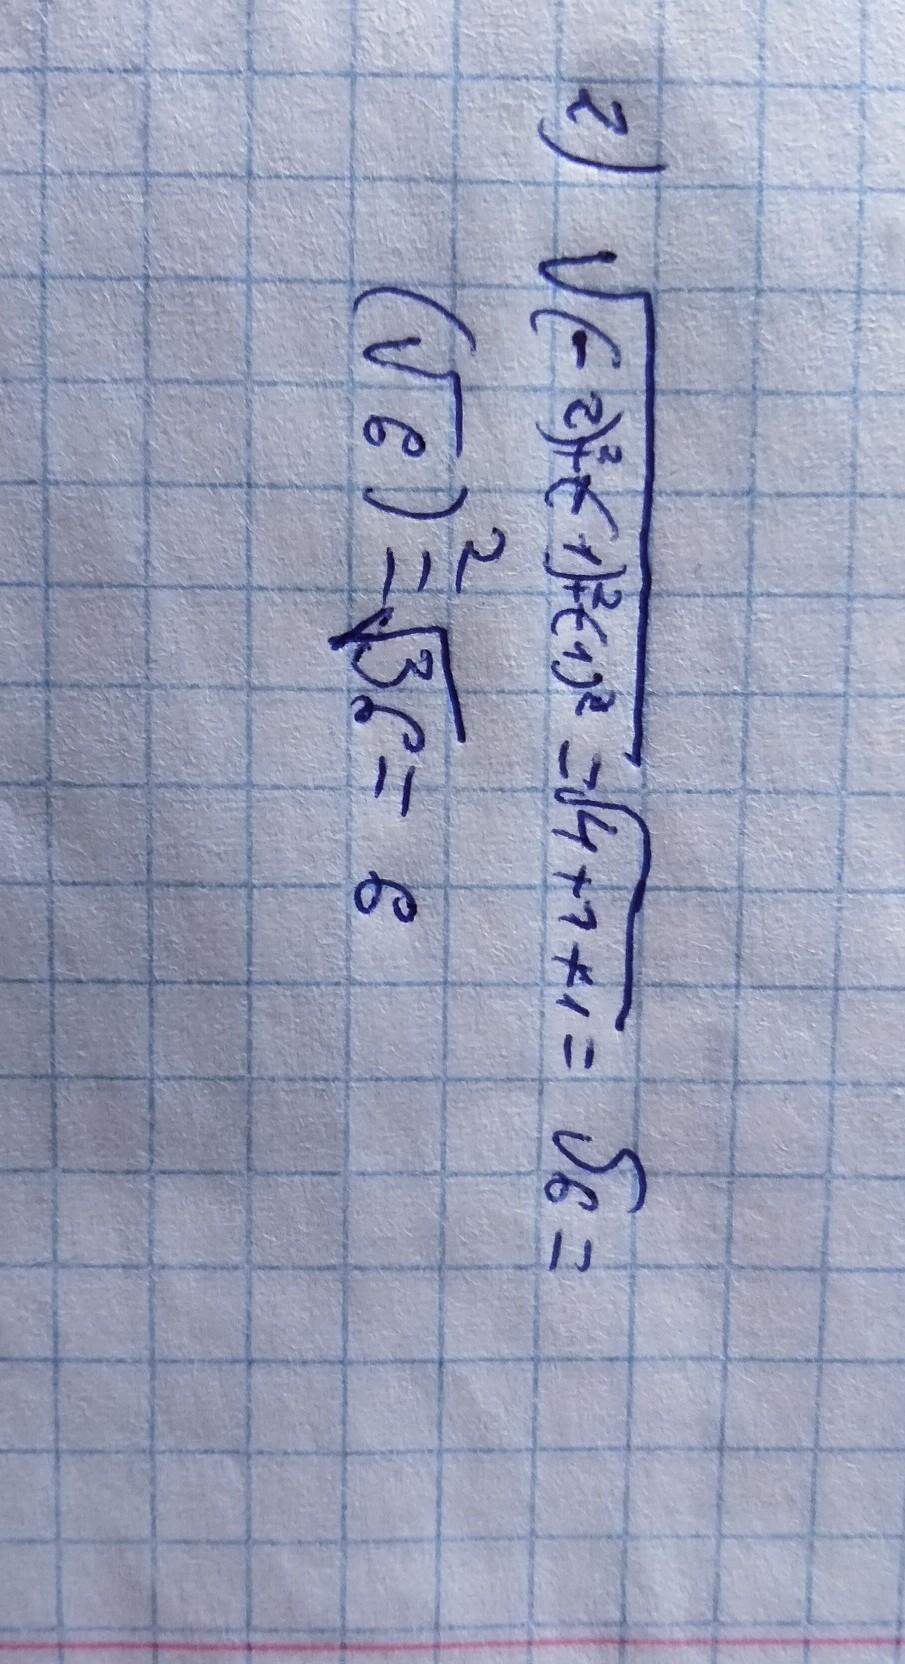 2) √(-2)²+(-1)²+(1)² = √4+1+1 = √6 =
(√6)² = √36 = 6